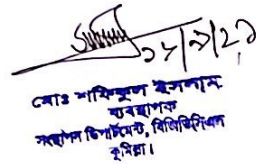 ১৮/৯/২১
মোঃ শফিকুল ইসলাম
ব্যবস্থাপক
ডিপার্টমেন্ট, বিজিডিসিএল
কুমিল্লা।